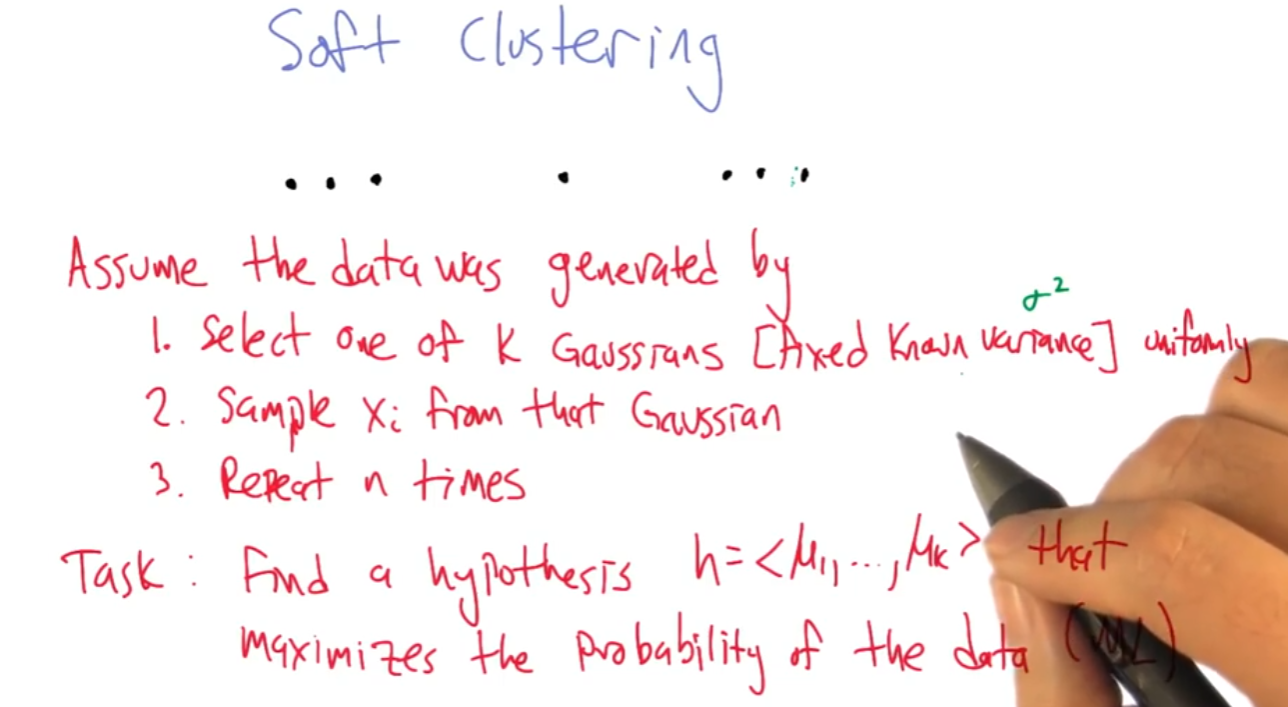 Soft Clustering
σ²
Assume the data was generated by
1. Select one of K Gaussians [fixed known variance] uniformly
2. Sample xᵢ from that Gaussian
3. Repeat n times
Task: Find a hypothesis h=<μ₁,...,μₖ> that
maximizes the probability of the data (ML)